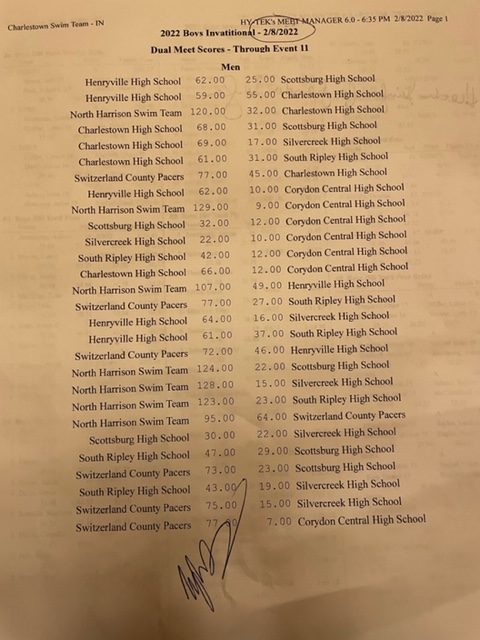 Charlestown Swim Team - IN
HY-TEK's MEET MANAGER 6.0 - 6:35 PM 2/8/2022 Page 1
2022 Boys Invatitional - 2/8/2022
Dual Meet Scores - Through Event 11
Men
Henryville High School 62.00 25.00 Scottsburg High School
Henryville High School 59.00 55.00 Charlestown High School
North Harrison Swim Team 120.00 32.00 Charlestown High School
Charlestown High School 68.00 31.00 Scottsburg High School
Charlestown High School 69.00 17.00 Silvercreek High School
Charlestown High School 61.00 31.00 South Ripley High School
Switzerland County Pacers 77.00 45.00 Charlestown High School
Henryville High School 62.00 10.00 Corydon Central High School
North Harrison Swim Team 129.00 9.00 Corydon Central High School
Scottsburg High School 32.00 12.00 Corydon Central High School
Silvercreek High School 22.00 10.00 Corydon Central High School
South Ripley High School 42.00 12.00 Corydon Central High School
Charlestown High School 66.00 12.00 Corydon Central High School
North Harrison Swim Team 107.00 49.00 Henryville High School
Switzerland County Pacers 77.00 27.00 South Ripley High School
Henryville High School 64.00 16.00 Silvercreek High School
Henryville High School 61.00 37.00 South Ripley High School
Switzerland County Pacers 72.00 46.00 Henryville High School
North Harrison Swim Team 124.00 22.00 Scottsburg High School
North Harrison Swim Team 128.00 15.00 Silvercreek High School
North Harrison Swim Team 123.00 23.00 South Ripley High School
North Harrison Swim Team 95.00 64.00 Switzerland County Pacers
Scottsburg High School 30.00 22.00 Silvercreek High School
South Ripley High School 47.00 29.00 Scottsburg High School
Switzerland County Pacers 73.00 23.00 Scottsburg High School
South Ripley High School 43.00 19.00 Silvercreek High School
Switzerland County Pacers 75.00 15.00 Silvercreek High School
Switzerland County Pacers 77.00 7.00 Corydon Central High School